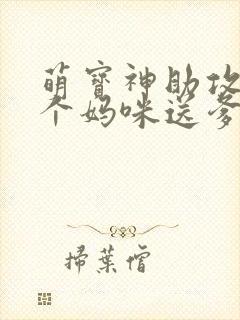 萌寶神助攻
个媽咪送爹
掃葉僧